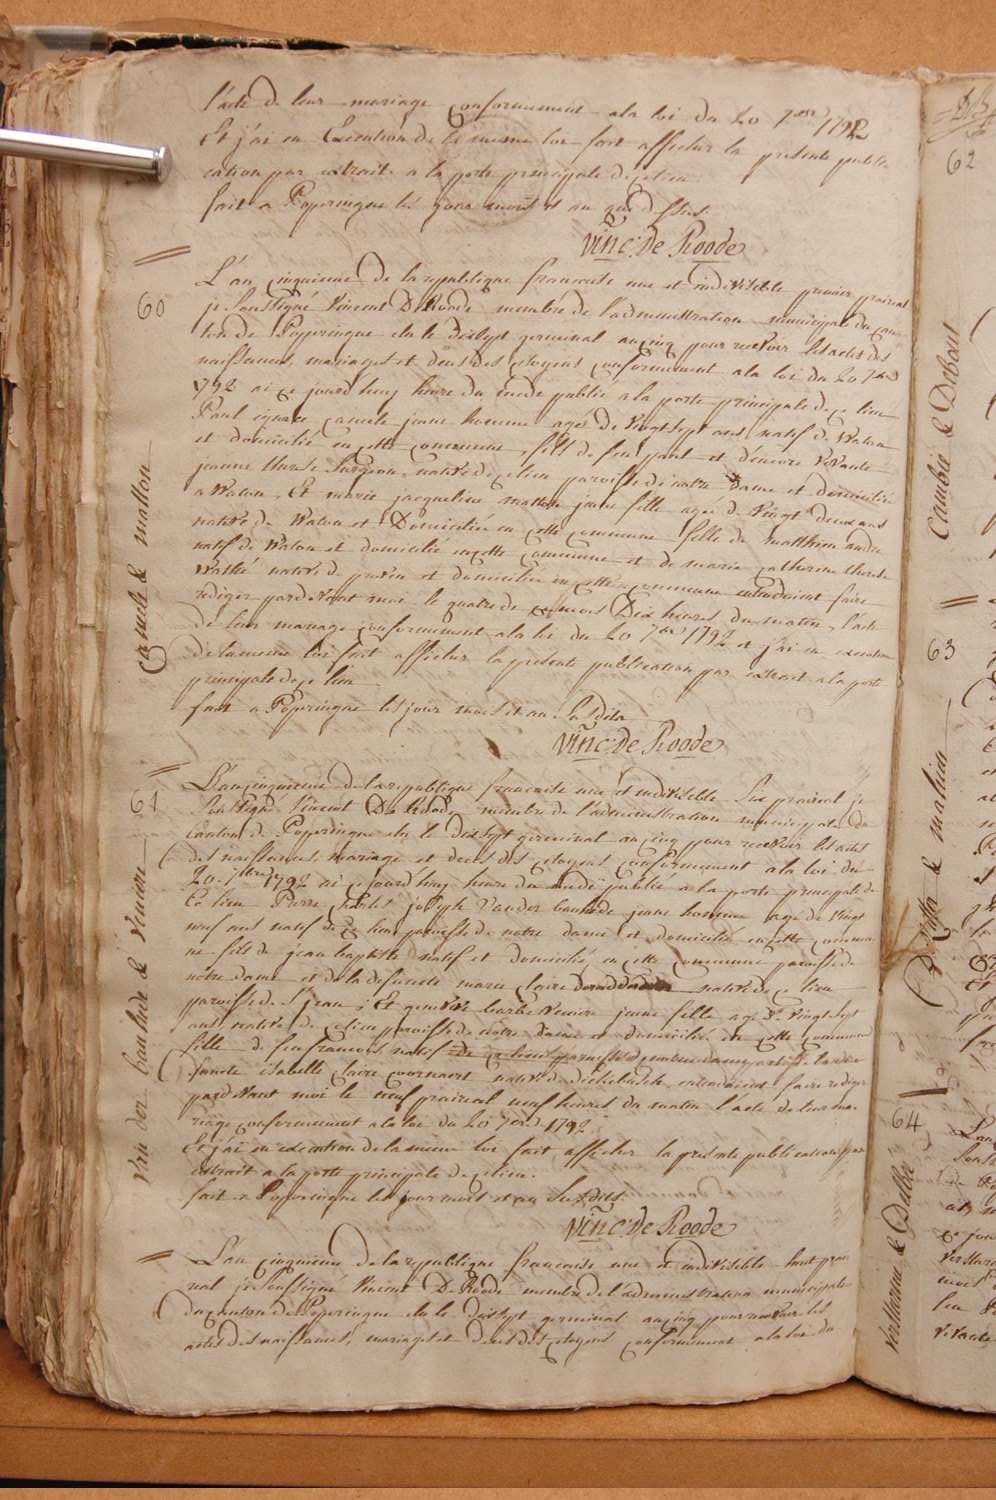 l'acte de leur mariage conformement ala loi du 20 7bre 1792
Et j'ai en Execution de la meme loi fait afficher la presente publi
cation par extrait a la porte principale de ce lieu
fait a Poperingue les jour mois et an que dessus.
Vinc: de Roode
60
canele & matton
L'an cinquieme de la republique francaise une et indivisible premier prairial
je soussigné Vincent De Roode membre de l'administration municipale du can
ton de Poperingue elu le dixsept germinal an cinq pour recevoir les actes des
naissances, mariages et deces des citoyens conformement ala loi du 20 7bre
1792 ai ce jourd'huy heure du midi publié a la porte principale de ce lieu
Paul ignace canele jeune homme agé de vingt sept ans natif de Watou
et domicilié en cette commune, fils de feu paul et d'encore vivante
jeanne therese native de ce lieu paroisse de notre Dame et domiciliée
a Watou, Et marie jacqueline matton jeune fille agée de vingt deux ans
native de Watou et Domiciliée en cette commune fille de matthieu andre
natif de Watou et domicilié en cette commune et de marie catherine therese
native de et domiciliée en cette commune entendoient faire
rediger pardevant moi le quatre de ce mois Dix heures du matin, l'acte
de leur mariage conformement ala loi du 20 7bre 1792 et j'ai en execution
de la meme loi fait afficher la presente publication par extrait ala porte
principale de ce lieu
fait a Poperingue les jour mois et an susdits
Vinc: de Roode
61
Van der bauhede & veniere
L'an cinquieme de la republique francaise une et indivisible Six prairial je
soussigné Vincent De Roode, membre de l'administration municipale du
canton de Poperingue elu le dixsept germinal an cinq pour recevoir les actes
des naissances, mariage et deces des citoyens conformement a la loi du
20 7bre 1792 ai ce jourd'huy heure du midi publié a la porte principale de
ce lieu Pierre joseph Vander bauhede jeune homme agé de vingt
neuf ans natif de ce lieu paroisse de notre dame et domicilié en cette commu
ne fils de jean baptiste natif et domicilié en cette commune paroisse de
notre dame et de la defuncte marie claire native de ce lieu
paroisse de St jean; Et genevieve barbe veniere jeune fille agée de vingt sept
ans native de ce lieu paroisse de notre dame et domiciliée en cette commune
fille de feu francois natif de ce lieu paroisse de notre dame et de la de
functe isabelle claire native de dickebusch entendoient faire rediger
pardevant moi le neuf prairial neuf heures du matin l'acte de leur ma
riage conformement a la loi du 20 7bre 1792
Et j'ai en execution de la meme loi fait afficher la presente publication par
extrait a la porte principale de ce lieu.
fait a Poperingue les jour mois et an susdits.
Vinc: de Roode
L'an cinquieme de la republique francaise une et indivisible huit prai
rial je soussigné Vincent De Roode membre de l'administration municipale
du canton de Poperingue elu le dixsept germinal an cinq pour recevoir les
actes des naissances, mariages et deces des citoyens conformement a la loi du
62
Cambie & Debout
63
& malieu
64